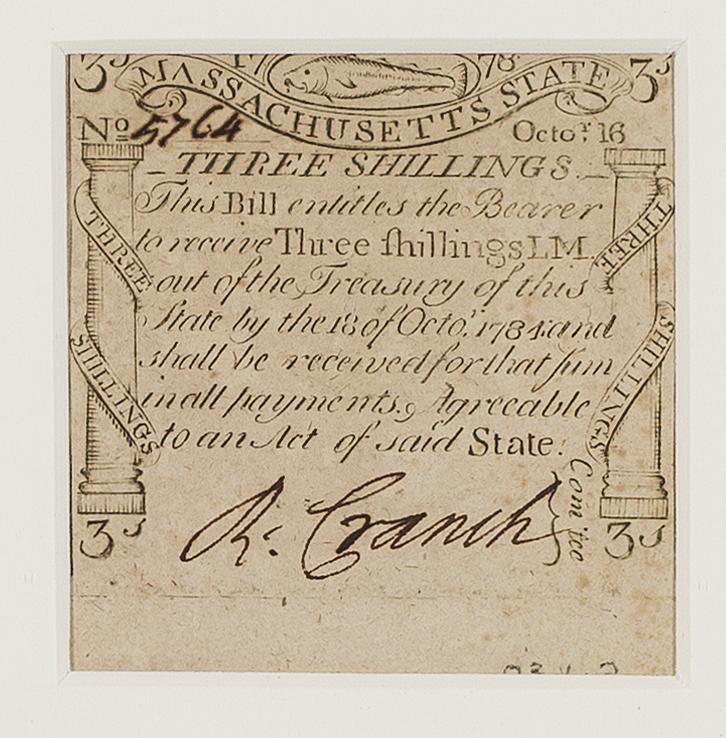 3s 17 78 3s
MASSACHUSETTS STATE
No 5764 Octor 16
THREE SHILLINGS.
This Bill entitles the Bearer
to receive Three ſhillings LM.
out of the Treasury of this
State by the 18 of Octo.r 1784 and
shall be received for that ſum
in all payments. Agreeable
to an Act of said State.
THREE SHILLINGS
THREE SHILLINGS
R. Cranch
Comitee
3s 3s